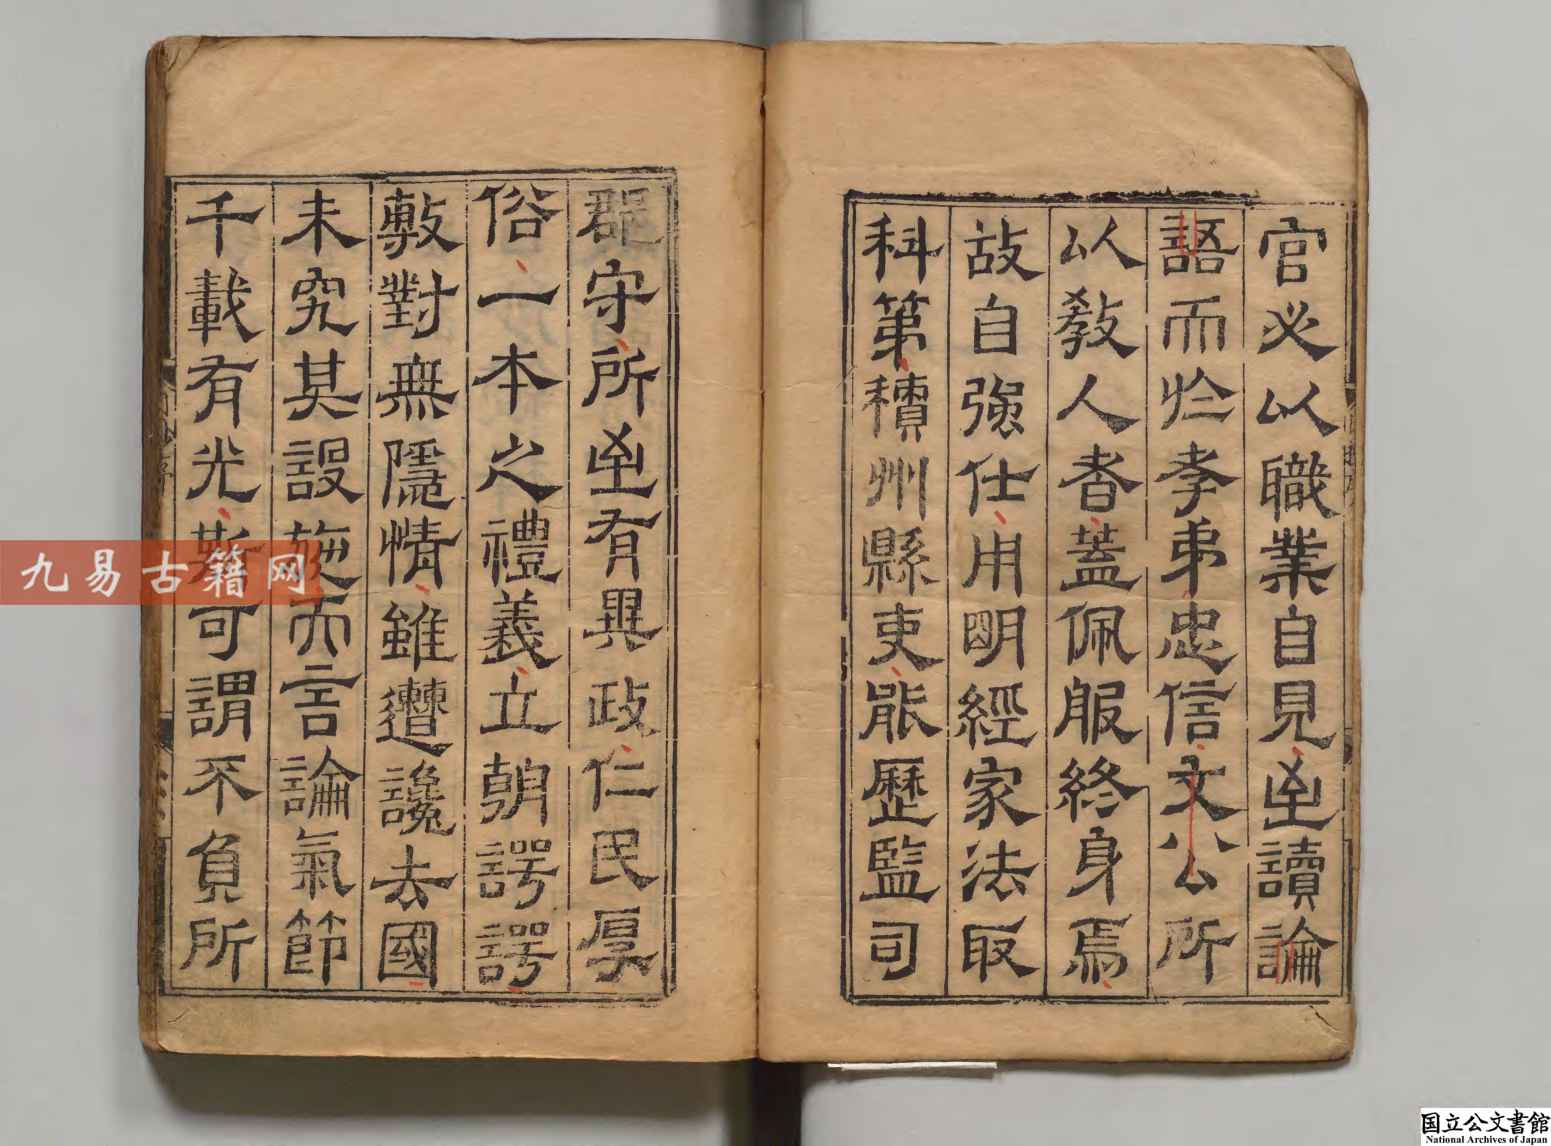 官必以職業自見㞷讀論
語而於孝弟忠信文公所
以教人者蓋佩服終身焉
故自強仕用明經家法取
科第積州縣吏能歷監司
郡守所㞷有異政仁民厚
俗一本之禮義立朝諤諤
敷對無隱情雖遭讒去國
未究其設施而言論氣節
千載有光斯可謂不負所
九易古籍网
国立公文書館
National Archives of Japan